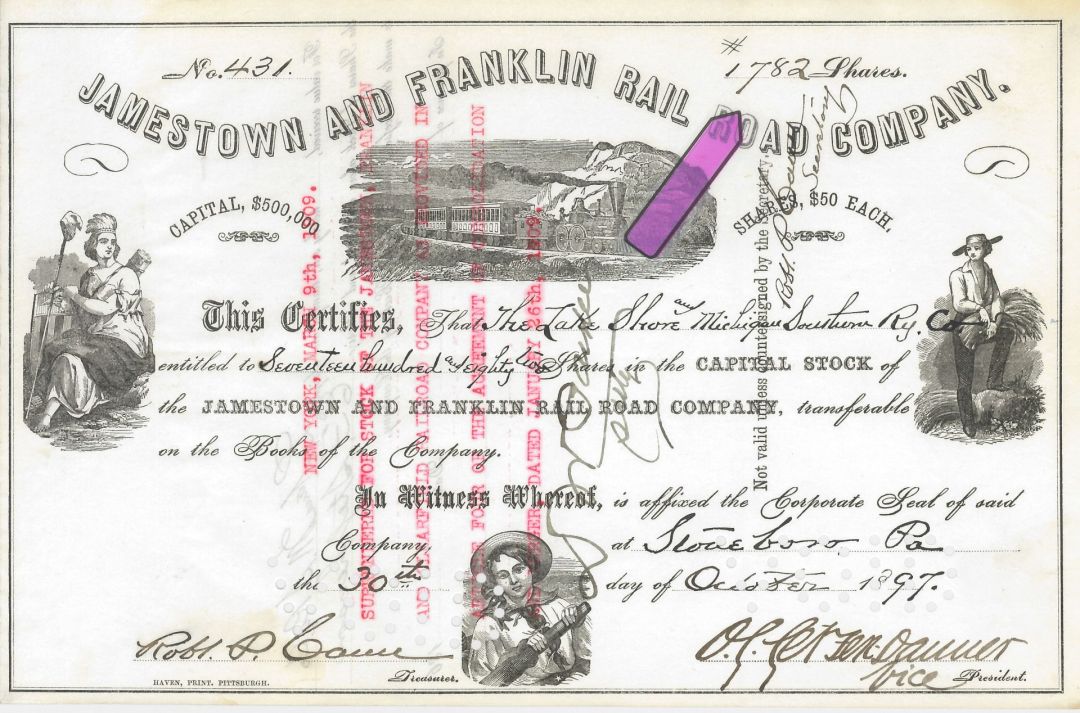 No. 431.
# 1782 Shares.
JAMESTOWN AND FRANKLIN RAIL ROAD COMPANY.
CAPITAL, $500,000
SHARES, $50 EACH.
This Certifies, That The Lake Shore and Michigan Southern Ry. Co
entitled to Seventeen hundred and Eighty two Shares in the CAPITAL STOCK of
the JAMESTOWN AND FRANKLIN RAIL ROAD COMPANY, transferable
on the Books of the Company.
In Witness Whereof, is affixed the Corporate Seal of said
Company, at Stoneboro Pa
the 30th day of October 1897.
Robt. P.
Treasurer.
Vice President.
HAVEN, PRINT. PITTSBURGH.
Not valid unless countersigned by the Secretary.
Robt P
Secretary
NEW YORK, MAR 9th, 1909.
SURRENDERED FOR STOCK OF THE JAMESTOWN, FRANKLIN
AND CLEARFIELD RAILROAD COMPANY AS PROVIDED IN
FOR OF THE AGREEMENT OF CONSOLIDATION
AND MERGER DATED JANUARY 26th, 1909.